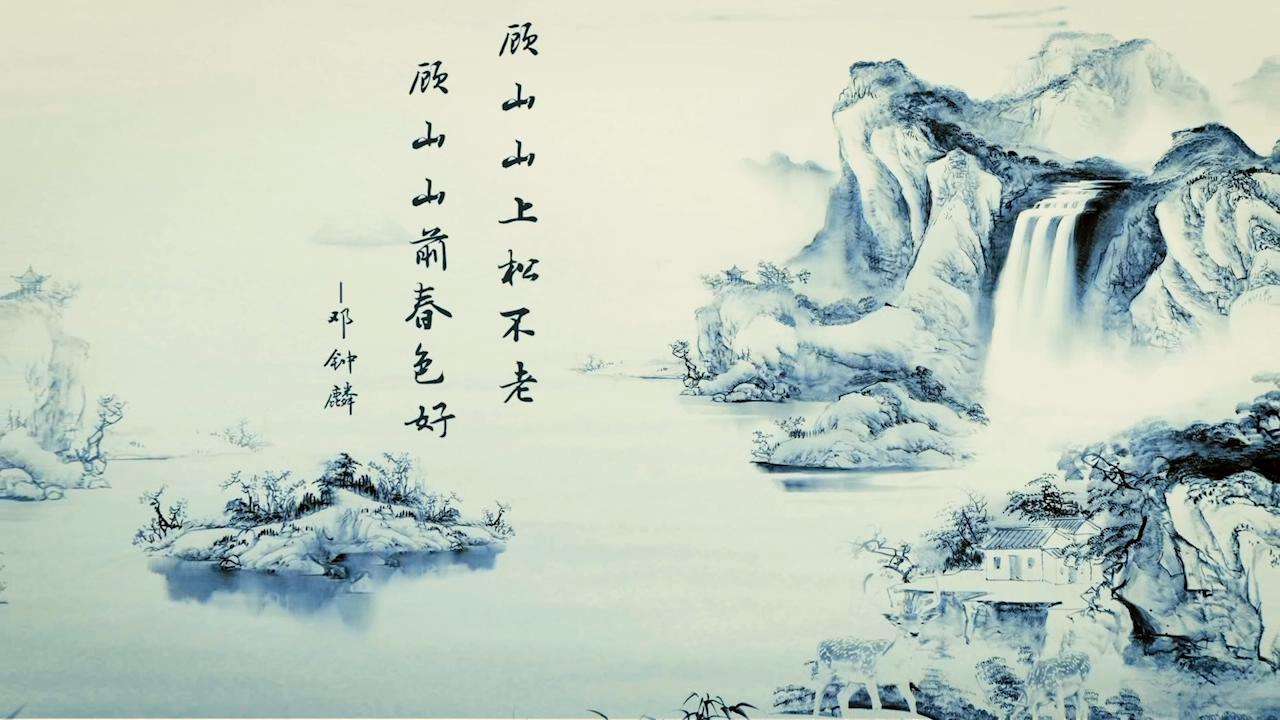 顾山山上松不老
顾山山前春色好
—邓钟麟